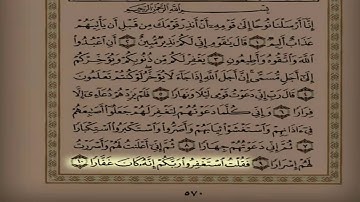 بِسْمِ اللَّهِ الرَّحْمَٰنِ الرَّحِيمِ
إِنَّا أَرْسَلْنَا نُوحًا إِلَىٰ قَوْمِهِ أَنْ أَنذِرْ قَوْمَكَ مِن قَبْلِ أَن يَأْتِيَهُمْ
عَذَابٌ أَلِيمٌ ١ قَالَ يَا قَوْمِ إِنِّي لَكُمْ نَذِيرٌ مُّبِينٌ ٢ أَنِ اعْبُدُوا
اللَّهَ وَاتَّقُوهُ وَأَطِيعُونِ ٣ يَغْفِرْ لَكُم مِّن ذُنُوبِكُمْ وَيُؤَخِّرْكُمْ
إِلَىٰ أَجَلٍ مُّسَمًّى إِنَّ أَجَلَ اللَّهِ إِذَا جَاءَ لَا يُؤَخَّرُ لَوْ كُنتُمْ تَعْلَمُونَ
٤ قَالَ رَبِّ إِنِّي دَعَوْتُ قَوْمِي لَيْلًا وَنَهَارًا ٥ فَلَمْ يَزِدْهُمْ دُعَائِي إِلَّا
فِرَارًا ٦ وَإِنِّي كُلَّمَا دَعَوْتُهُمْ لِتَغْفِرَ لَهُمْ جَعَلُوا أَصَابِعَهُمْ
فِي آذَانِهِمْ وَاسْتَغْشَوْا ثِيَابَهُمْ وَأَصَرُّوا وَاسْتَكْبَرُوا اسْتِكْبَارًا
٧ ثُمَّ إِنِّي دَعَوْتُهُمْ جِهَارًا ٨ ثُمَّ إِنِّي أَعْلَنتُ لَهُمْ وَأَسْرَرْتُ
لَهُمْ إِسْرَارًا ٩ فَقُلْتُ اسْتَغْفِرُوا رَبَّكُمْ إِنَّهُ كَانَ غَفَّارًا ١٠
٥٧٠